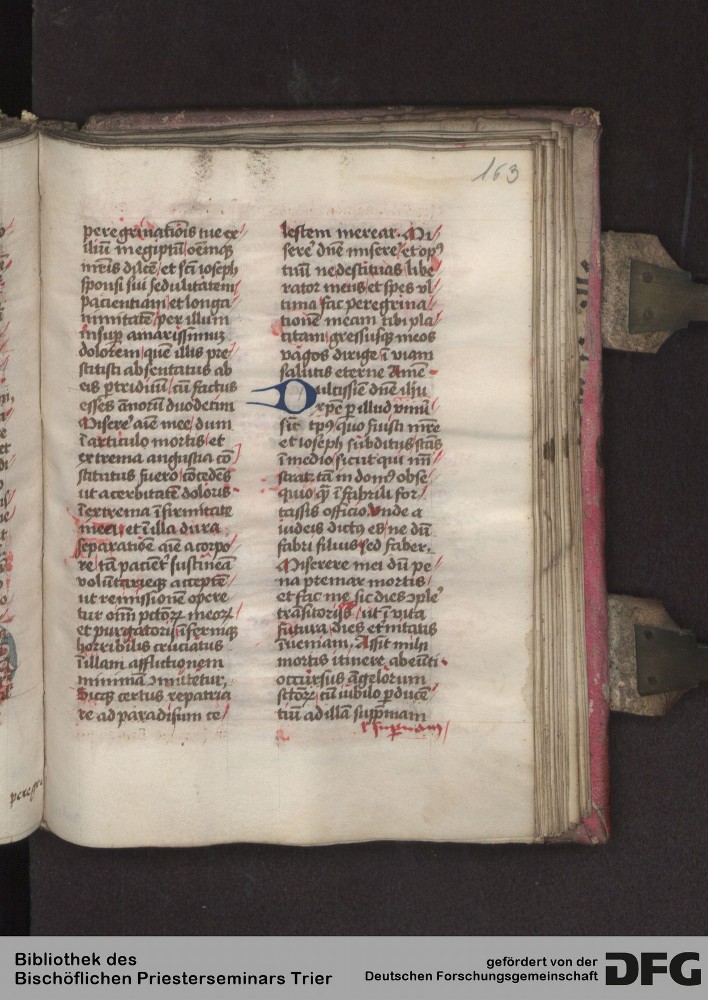 163
peregrinatiõis tue ex
iliũ in egiptũ oẽmq̃
mr̃is dilcẽ et scĩ ioseph
sponsi sui sedulitatem
pacientiam et longa
nimitatẽ per illum
insup amarissimuz
dolorem quẽ illis pre
stitisti absentatus ab
eis p triduũ cũ factus
esses ãnorũ duodecim
Misere aĩe mee dum
ĩ articulo mortis et
extrema angustia cõ
stitutus fuero cõcedẽs
ut acerbitatẽ doloris
ĩ extrema ĩfirmitate
mee et ĩ illa dura
separatiõe aĩe a corpo
re tã paciẽt sustineã
volũtarieq̃ acceptẽ
ut remissionẽ opere
tur om̃i pctõꝝ meoꝝ
et purgatorii ĩferniq̃
horribilis cruciatus
ĩ illam afflictionem
minimã ɔmutetur
Sicq̃ certus repatria
re ad paradisum ce
lestem merear. Mi
sere dñe misere et opꝰ
tuũ ne destituas libe
rator meus et spes vl
tima fac peregrina
tionẽ meam tibi pla
citam gressusq̃ meos
vagos dirige ĩ viam
salutis eterne Amẽ
Dulcissie dñe ihũ
xp̃e p illud
tpꝰ quo fuisti mr̃e
et ioseph subditus stãs
ĩ medio sicut qui mĩ
strat tã in domo obse
quio q̃ ĩ fabrili for
tassis officio vnde a
iudeis dictꝰ es ne dũ
fabri filius sed faber.
Miserere mei dũ pe
na premar mortis
et fac me sic dies ɔple
trãsitoriis ut ĩ vita
futura dies et̃nitatis
ĩueniam. Assit mihi
mortis itinere abeũti
occursus ãgelorum
sctõꝝ cũ iubilo p ducẽ
tiũ ad illã supp̃mam
supernam
peregri
Bibliothek des
Bischöflichen Priesterseminars Trier
gefördert von der
Deutschen Forschungsgemeinschaft
DFG